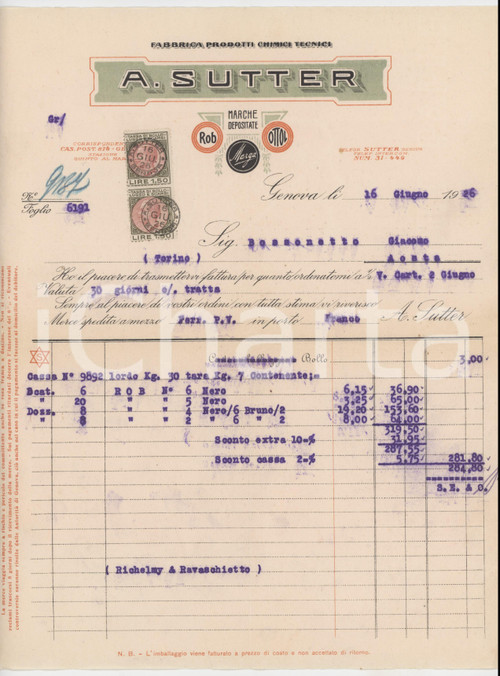 FABBRICA PRODOTTI CHIMICI TECNICI
A. SUTTER
MARCHE
DEPOSITATE
Rob
Marga
OTTOL
Gr/
TELEFO SUTTER GENOVA
NUM. 31-446
16
GIU
LIRE 1,50
16
GIU
LIRE 1,50
No 9184
Foglio 6191
Genova lì 16 Giugno 1926
Sig. Bossonetto Giacomo
( Torino) Aosta
Ho il piacere di trasmettervi fattura per quanto ordinatomi a 1/2 V. Cart. 2 Giugno
Valuta 30 giorni c/. tratta
Sempre al piacere di vostri ordini con tutta stima vi riverisco
Merce spedita a mezzo Ferr. P.V. in porto Franco A. Sutter
Bollo 3,00
Cassa N° 9892 lordo Kg. 30 tara Kg. 7 Contenente:
Scat. 6 R O B N° 6 Nero 6,15 36,90
" 20 " " 4 Nero 3,25 65,00
Dozz. 8 " " 4 Nero/6 Bruno/2 19,20 153,60
" 8 " " 2 " 6 " 2 8,00 64,00
319,50
Sconto extra 10=% 31,95
287,55
Sconto cassa 2=% 5,75 281,80
284,80
S. E. & O.
( Richelmy & Ravaschietto )
N. B. - L'imballaggio viene fatturato a prezzo di costo e non accettato di ritorno.
iCharta